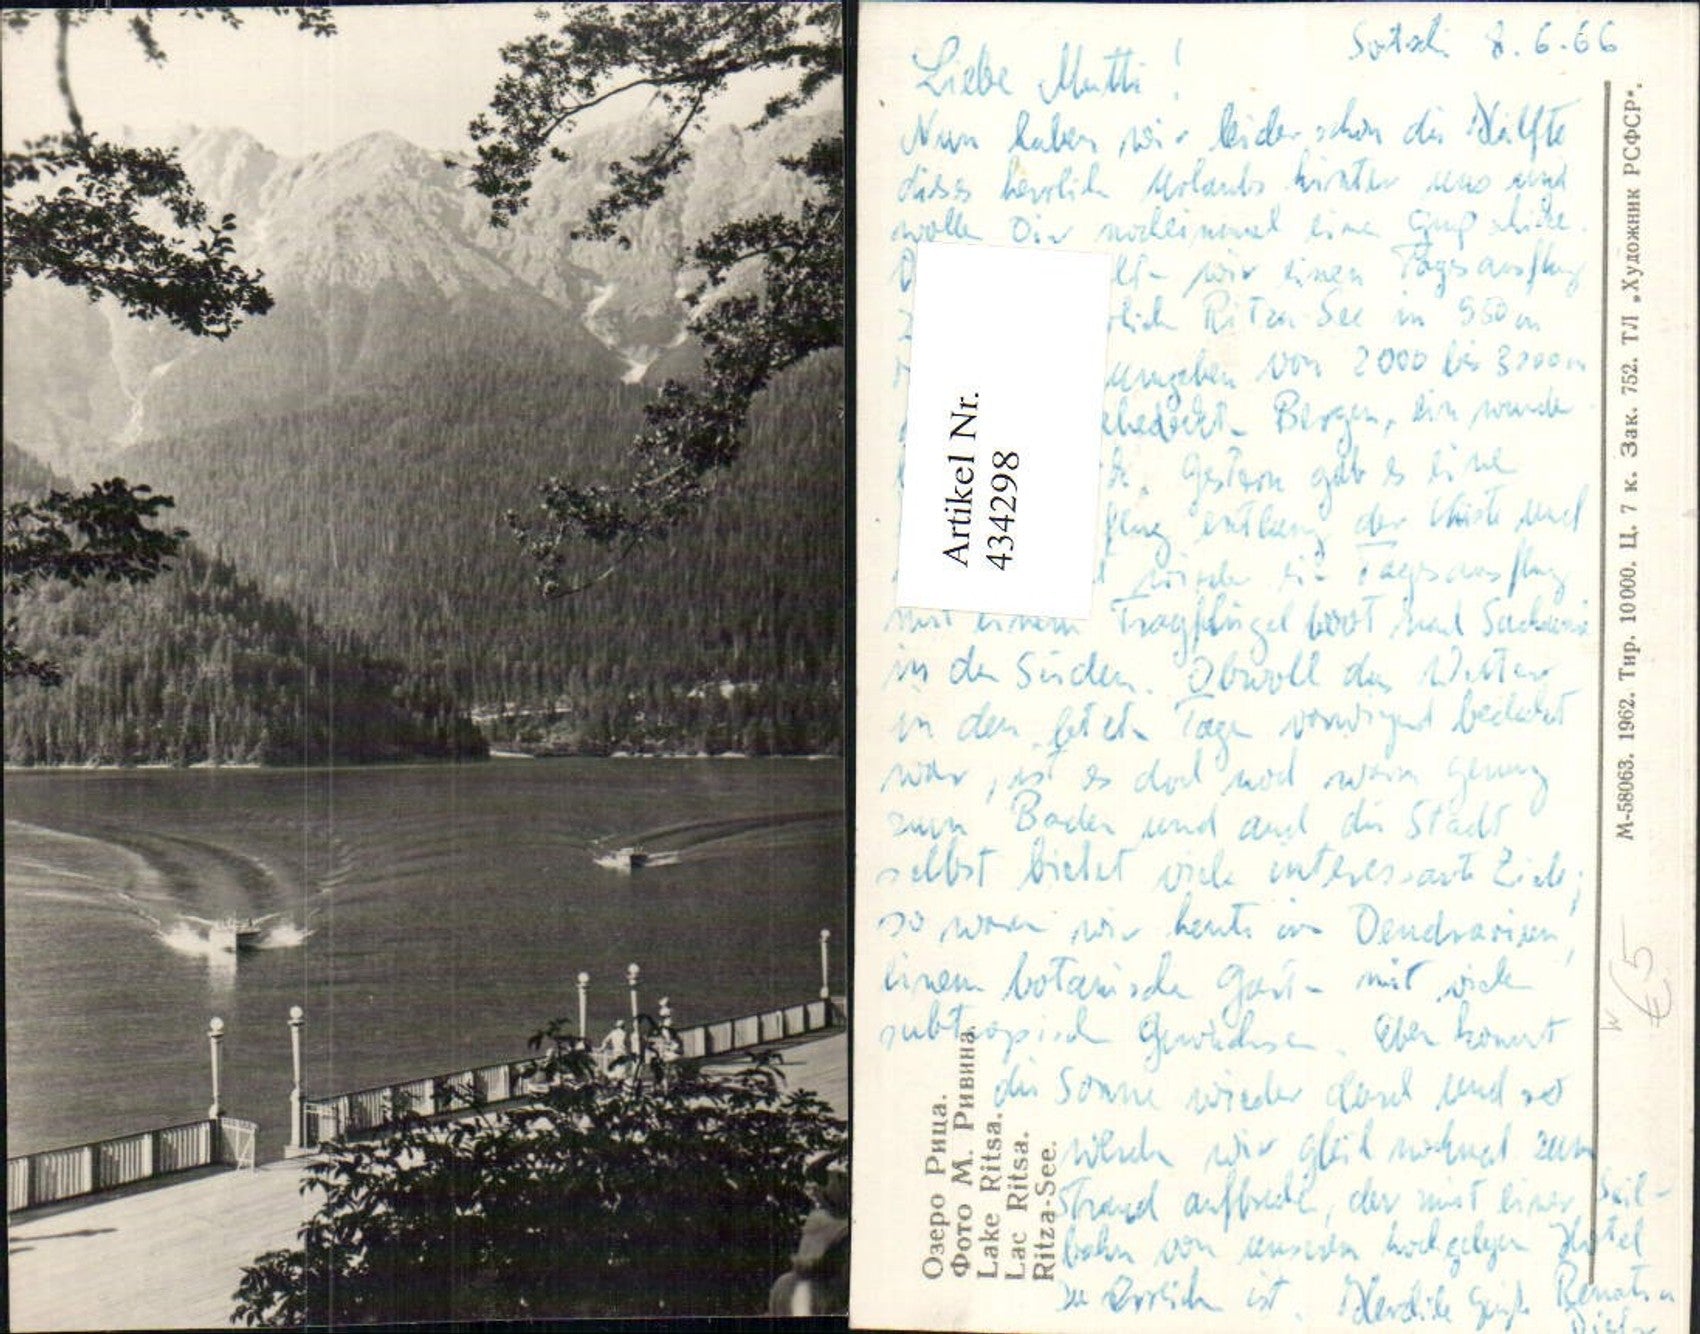 Sotschi 8.6.66
Liebe Mutti!
Nun haben wir leider schon die Hälfte
dieses herrlichen Urlaubs hinter uns und
wollen Dir nocheinmal einen Gruß schicken.
wir einen Tagesausflug
Ritza-See in 950 m
umgeben von 2000 bis 3000 m
Bergen, ein
Gestern gab es eine
entlang der Küste und
wieder ein Tagesausflug
mit einem Tragflügelboot nach Suchumi
in den Süden. Obwohl das Wetter
in den letzten Tagen vorwiegend bedeckt
war, ist es doch noch warm genug
zum Baden und auch die Stadt
selbst bietet viele interessante Ziele;
so waren wir heute im Dendrarium,
einem botanischen Garten mit vielen
subtropischen Gewächsen. Eben kommt
die Sonne wieder durch und so
werden wir gleich nochmal zum
Strand aufbrechen, der mit einer Seil-
bahn von unserem hochgelegenen Hotel
zu erreichen ist. Herzliche Grüße Renate
Artikel Nr.
434298
Озеро Рица.
Фото М. Ривина.
Lake Ritsa.
Lac Ritsa.
Ritza-See.
М-58063. 1962. Тир. 10 000. Ц. 7 к. Зак. 752. ТЛ „Художник РСФСР“.
€5